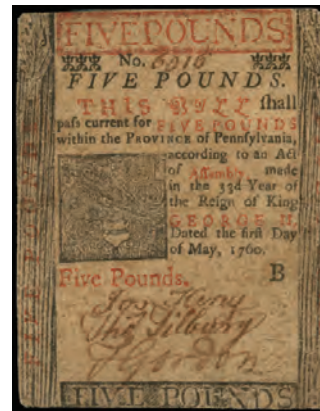 FIVE POUNDS
No. 6916
FIVE POUNDS.
THIS BILL ſhall
paſs current for FIVE POUNDS
within the PROVINCE of Pennſylvania,
according to an Act
of Aſſembly, made
in the 33d Year of
the Reign of King
GEORGE II.
Dated the firſt Day
of May, 1760.
Five Pounds. B
Gordon
FIVE POUNDS